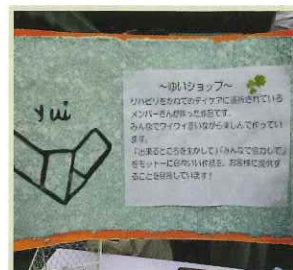 yui
～ゆいショップ～
リハビリをかねてのデイケアに通所されている
メンバーさんが作った作品です。
みんなでワイワイ言いながら楽しんで作ってい
ます。
「出来るところを生かして」「みんなで協力して」
をモットーに
作品を、お客様に提供す
ることを目指しています！